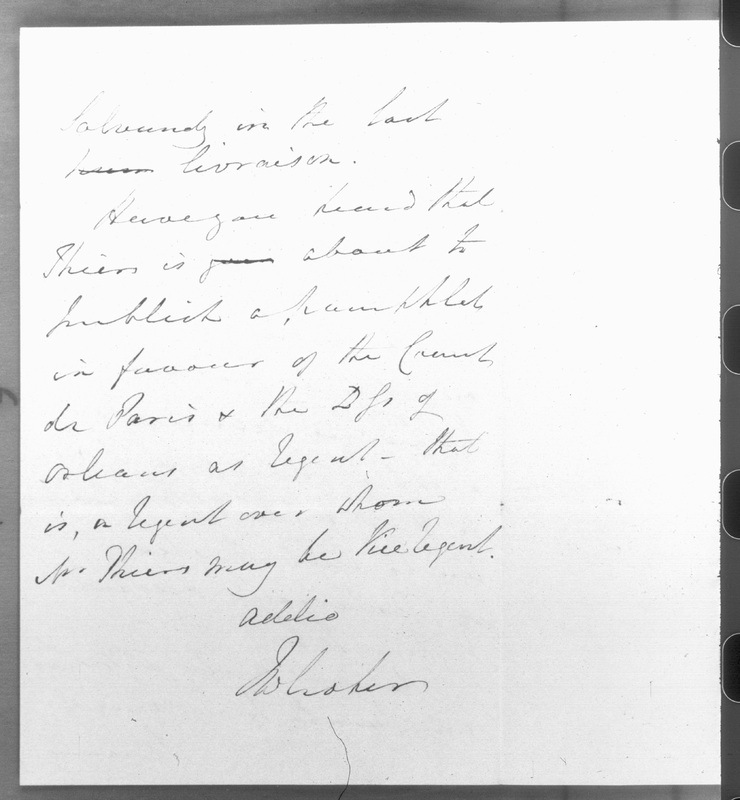 Salvandy in the last
livraison.
Have you heard that
Thiers is about to
publish a pamphlet
in favour of the Count
de Paris & the Dss of
Orleans as Regent – that
is, a Regent over whom
Mr. Thiers may be Vice Regent.
Addio
JWCroker